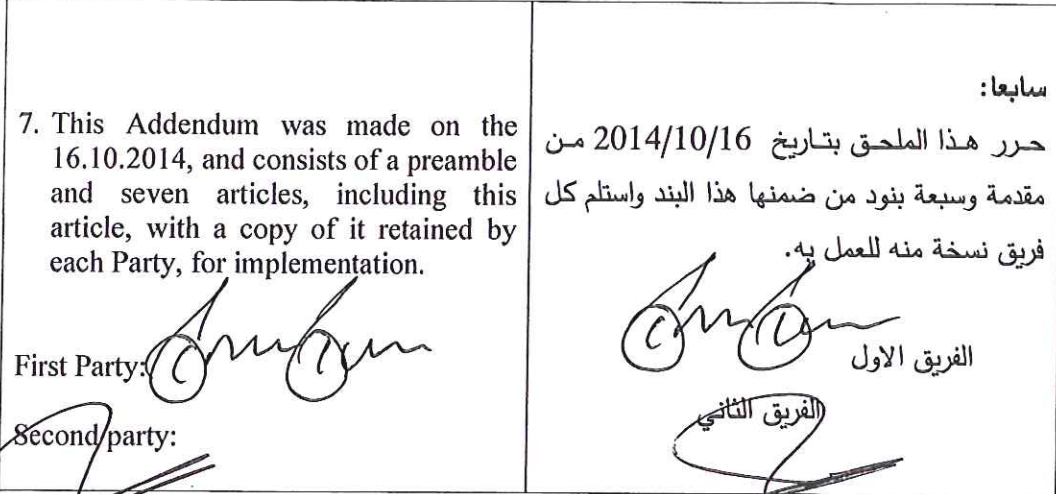 7. This Addendum was made on the
16.10.2014, and consists of a preamble
and seven articles, including this
article, with a copy of it retained by
each Party, for implementation.
First Party:
Second party:
سابعا:
حرر هذا الملحق بتاريخ 2014/10/16 من
مقدمة وسبعة بنود من ضمنها هذا البند واستلم كل
فريق نسخة منه للعمل به.
الفريق الاول
الفريق الثاني